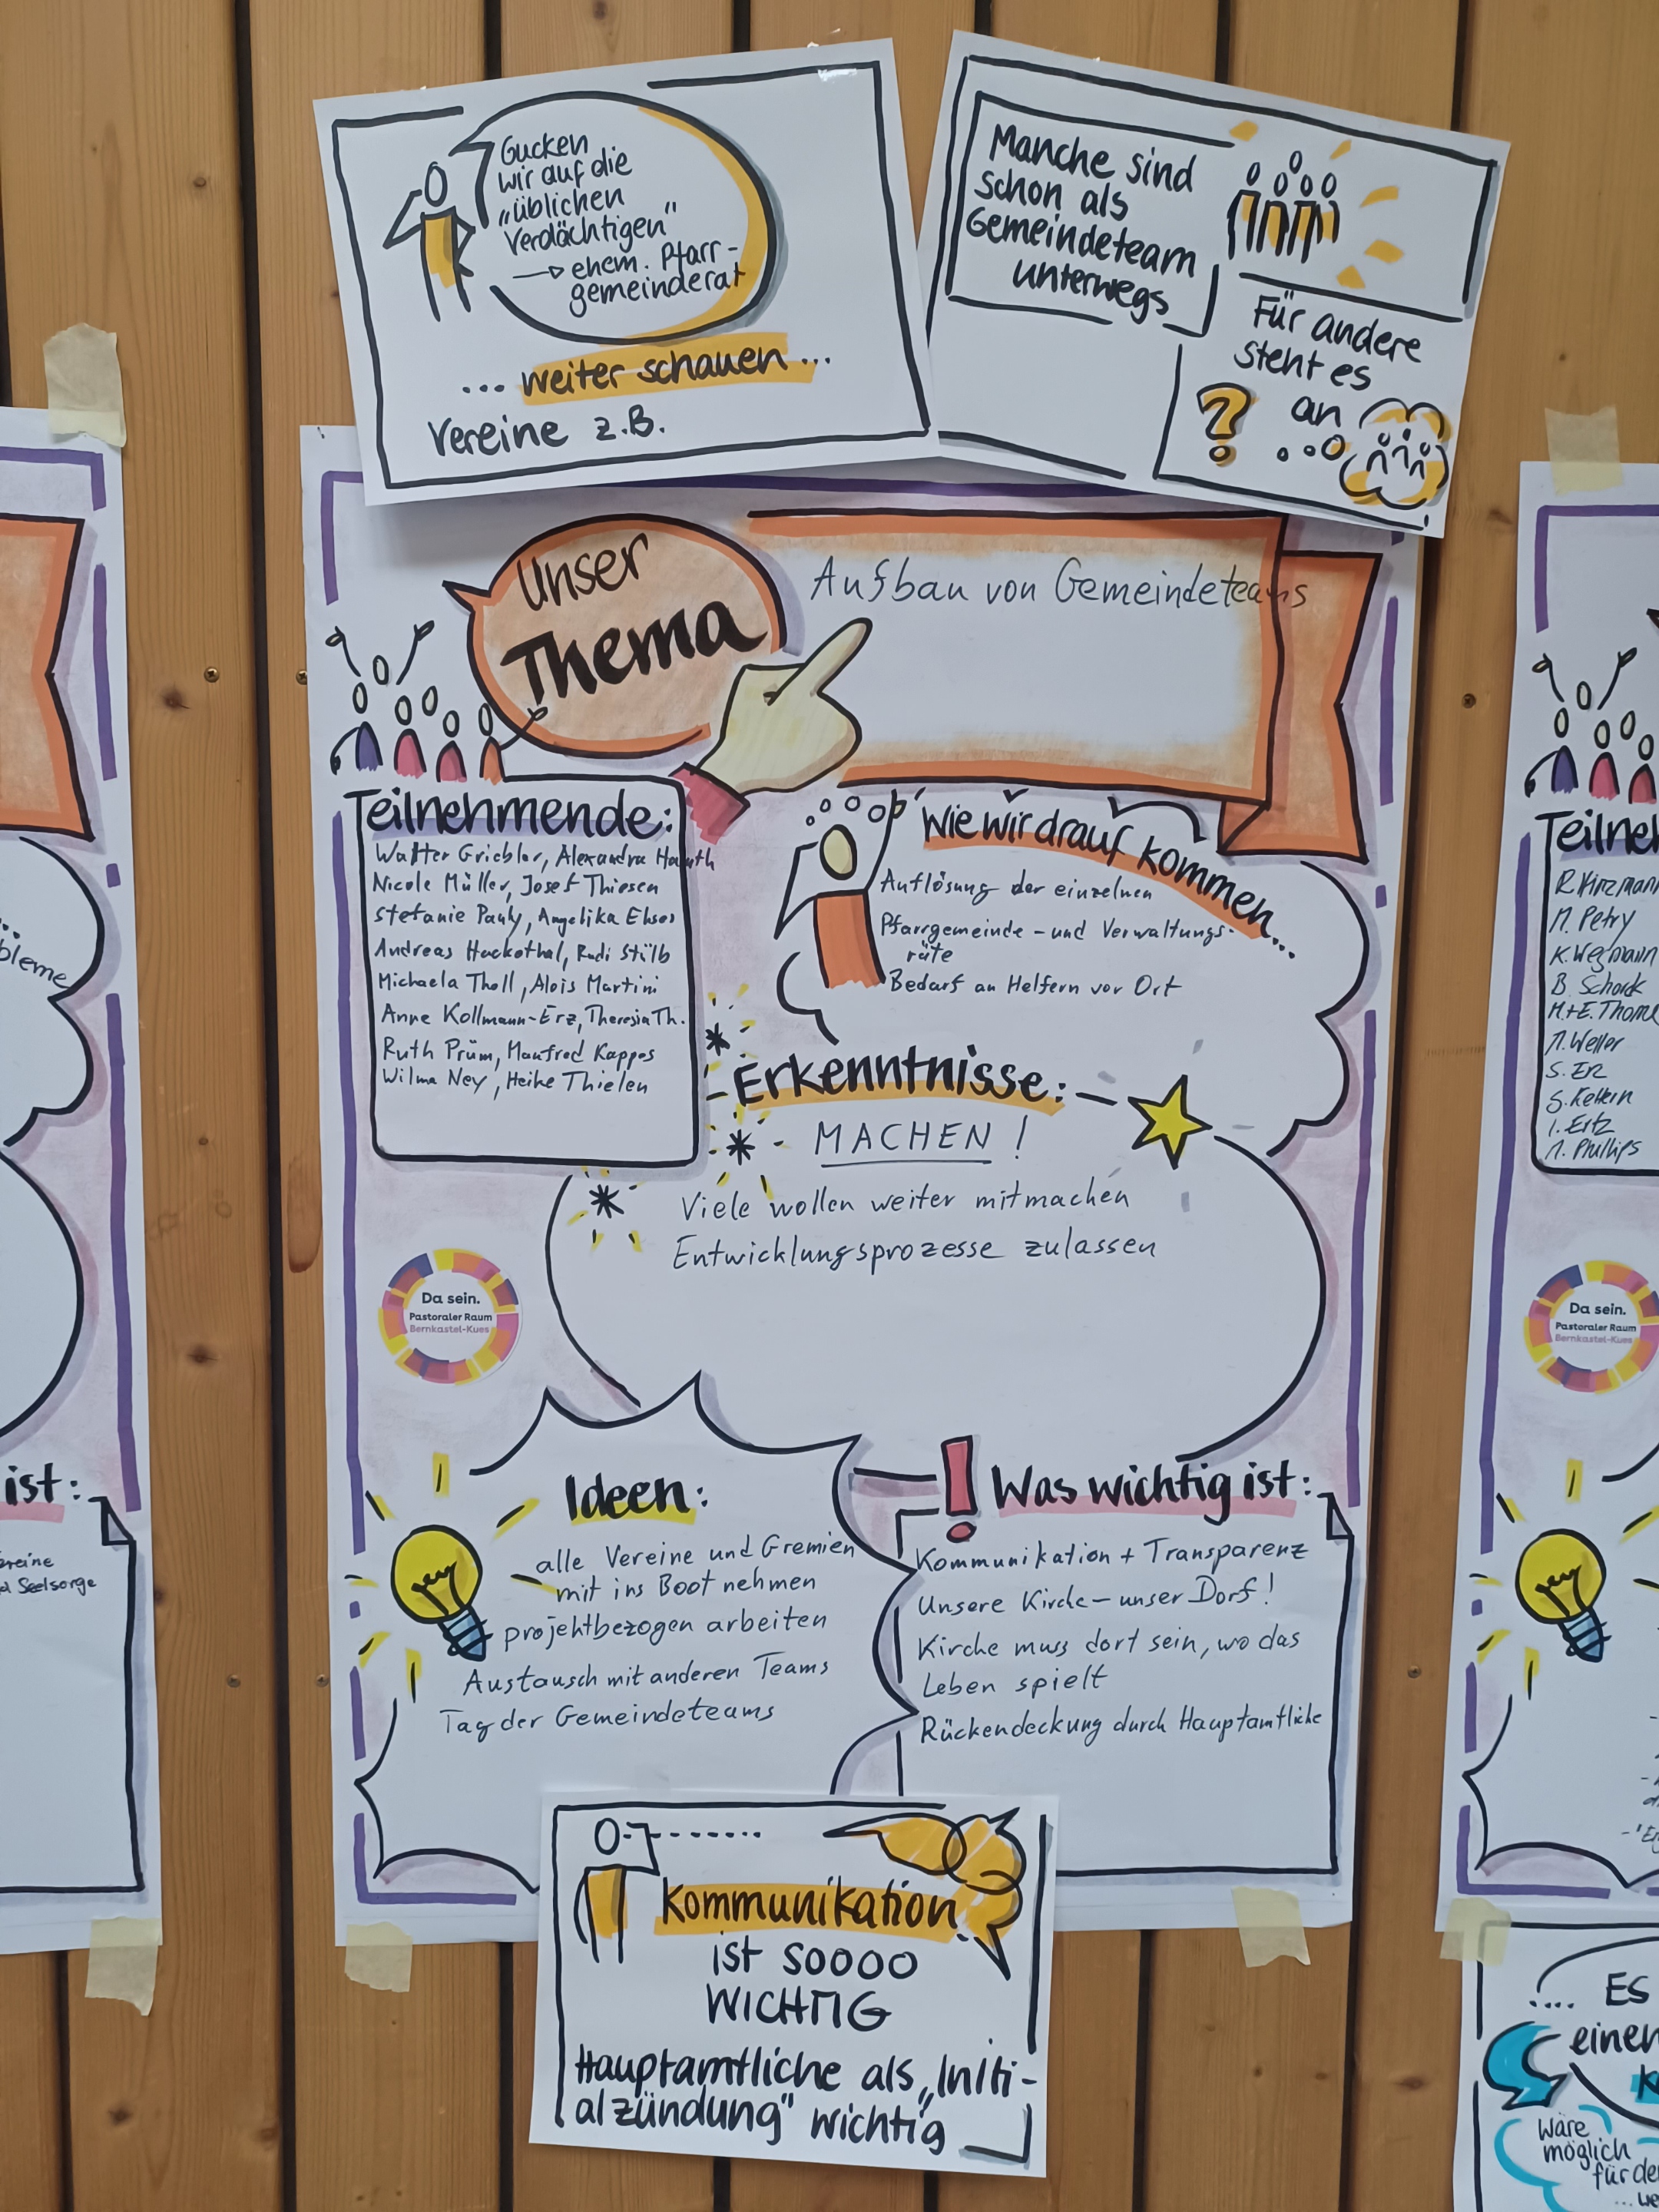 Gucken
wir auf die
„üblichen
Verdächtigen"
ehem. Pfarr-
gemeinderat
... weiter schauen ...
Vereine z.B.
Manche sind
schon als
Gemeindeteam
unterwegs
Für andere
steht es
an
?
Unser
Thema
Aufbau von Gemeindeteams
Teilnehmende:
Walter Griebler, Alexandra Hauth
Nicole Müller, Josef Thiesen
Stefanie Pauly, Angelika Ehses
Andreas Hackethal, Rudi Stülb
Michaela Tholl, Alois Martini
Anne Kollmann-Erz, Theresia Th.
Ruth Prüm, Manfred Kappes
Wilma Ney, Heike Thielen
Wie wir drauf kommen...
Auflösung der einzelnen
Pfarrgemeinde- und Verwaltungs-
räte
Bedarf an Helfern vor Ort
Erkenntnisse:
MACHEN!
Viele wollen weiter mitmachen
Entwicklungsprozesse zulassen
Da sein.
Pastoraler Raum
Bernkastel-Kues
Ideen:
alle Vereine und Gremien
mit ins Boot nehmen
projektbezogen arbeiten
Austausch mit anderen Teams
Tag der Gemeindeteams
! Was wichtig ist:
Kommunikation + Transparenz
Unsere Kirche - unser Dorf!
Kirche muss dort sein, wo das
Leben spielt
Rückendeckung durch Hauptamtliche
Kommunikation
ist soooo
WICHTIG
Hauptamtliche als „Initi-
alzündung" wichtig
bleme
ist:
Seelsorge
Teilneh
M. Petry
K. Wegmann
B. Schock
M.+E. Thome
M. Weller
S. Erz
I. Ertz
M. Phillips
Da sein.
Pastoraler Raum
Bernkastel-Kues
.... ES
einen
K
Wäre
möglich
für de